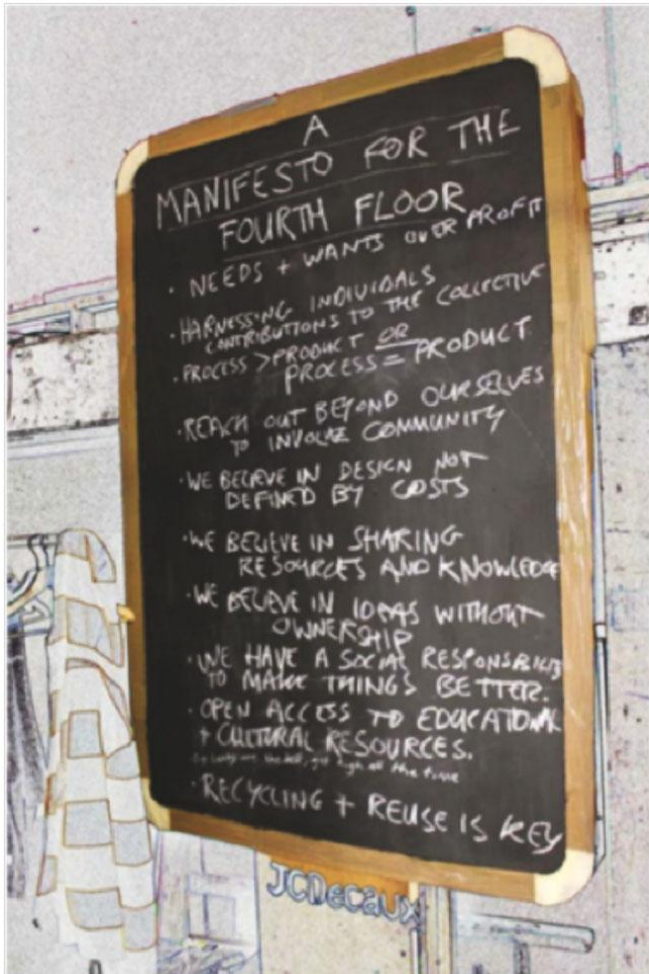 A
MANIFESTO FOR THE
FOURTH FLOOR
· NEEDS + WANTS OVER PROFIT
· HARNESSING INDIVIDALS
CONTRIBUTIONS TO THE COLLECTIVE
· PROCESS > PRODUCT OR
PROCESS = PRODUCT
· REACH OUT BEYOND OURSELVES
TO INVOLVE COMMUNITY
· WE BELIEVE IN DESIGN NOT
DEFINED BY COSTS
· WE BELIEVE IN SHARING
RESOURCES AND KNOWLEDGE
· WE BELIEVE IN IDEAS WITHOUT
OWNERSHIP
· WE HAVE A SOCIAL RESPONSABILITY
TO MAKE THINGS BETTER.
· OPEN ACCESS TO EDUCATIONAL
+ CULTURAL RESOURCES.
high all the time
· RECYCLING + REUSE IS KEY
JCDecaux